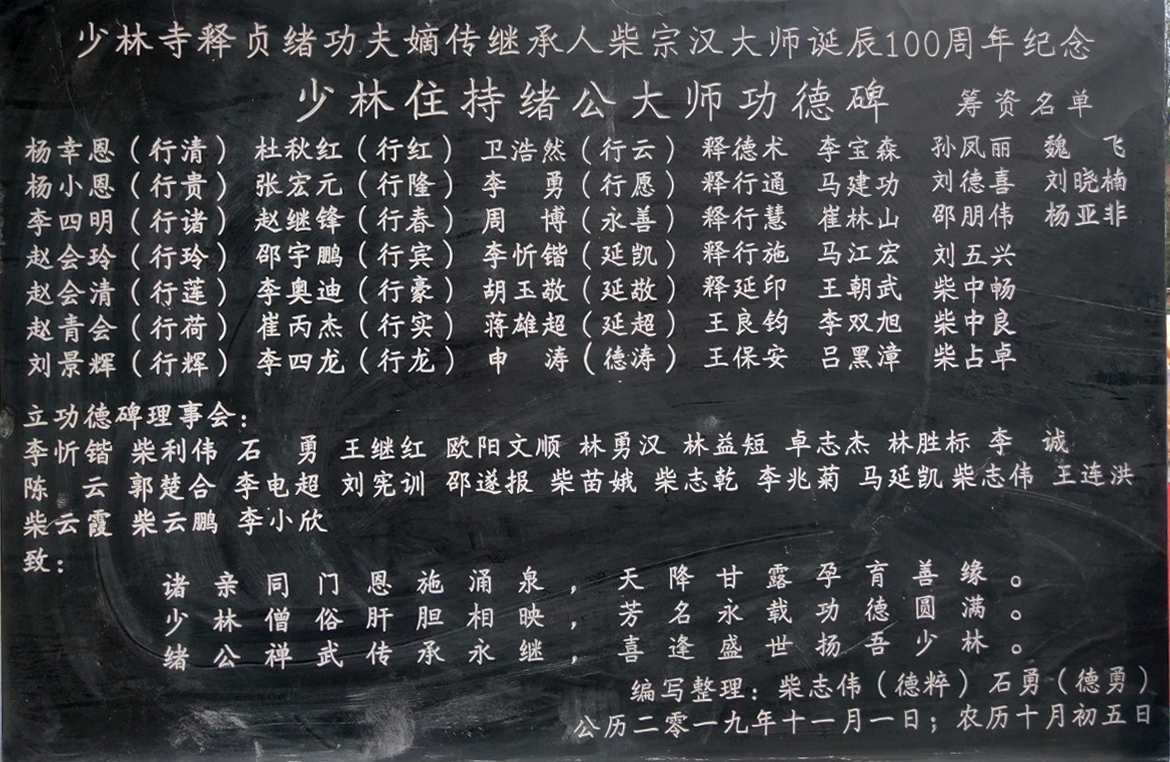 少林寺释贞绪功夫嫡传继承人柴宗汉大师诞辰100周年纪念
少林住持绪公大师功德碑 筹资名单
杨幸恩（行清） 杜秋红（行红） 卫浩然（行云） 释德术 李宝森 孙凤丽 魏 飞
杨小恩（行贵） 张宏元（行隆） 李 勇（行愿） 释行通 马建功 刘德喜 刘晓楠
李四明（行诸） 赵继锋（行春） 周 博（永善） 释行慧 崔林山 邵朋伟 杨亚非
赵会玲（行玲） 邵宇鹏（行宾） 李忻锴（延凯） 释行施 马江宏 刘五兴
赵会清（行莲） 李奥迪（行豪） 胡玉敬（延敬） 释延印 王朝武 柴中畅
赵青会（行荷） 崔丙杰（行实） 蒋雄超（延超） 王良钧 李双旭 柴中良
刘景辉（行辉） 李四龙（行龙） 申 涛（德涛） 王保安 吕黑漳 柴占卓
立功德碑理事会：
李忻锴 柴利伟 石 勇 王继红 欧阳文顺 林勇汉 林益短 卓志杰 林胜标 李 诚
陈 云 郭楚合 李电超 刘宪训 邵遂报 柴苗娥 柴志乾 李兆菊 马延凯 柴志伟 王连洪
柴云霞 柴云鹏 李小欣
致：
诸亲同门恩施涌泉，天降甘露孕育善缘。
少林僧俗肝胆相映，芳名永载功德圆满。
绪公禅武传承永继，喜逢盛世扬吾少林。
编写整理：柴志伟（德粹）石勇（德勇）
公历二零一九年十一月一日；农历十月初五日